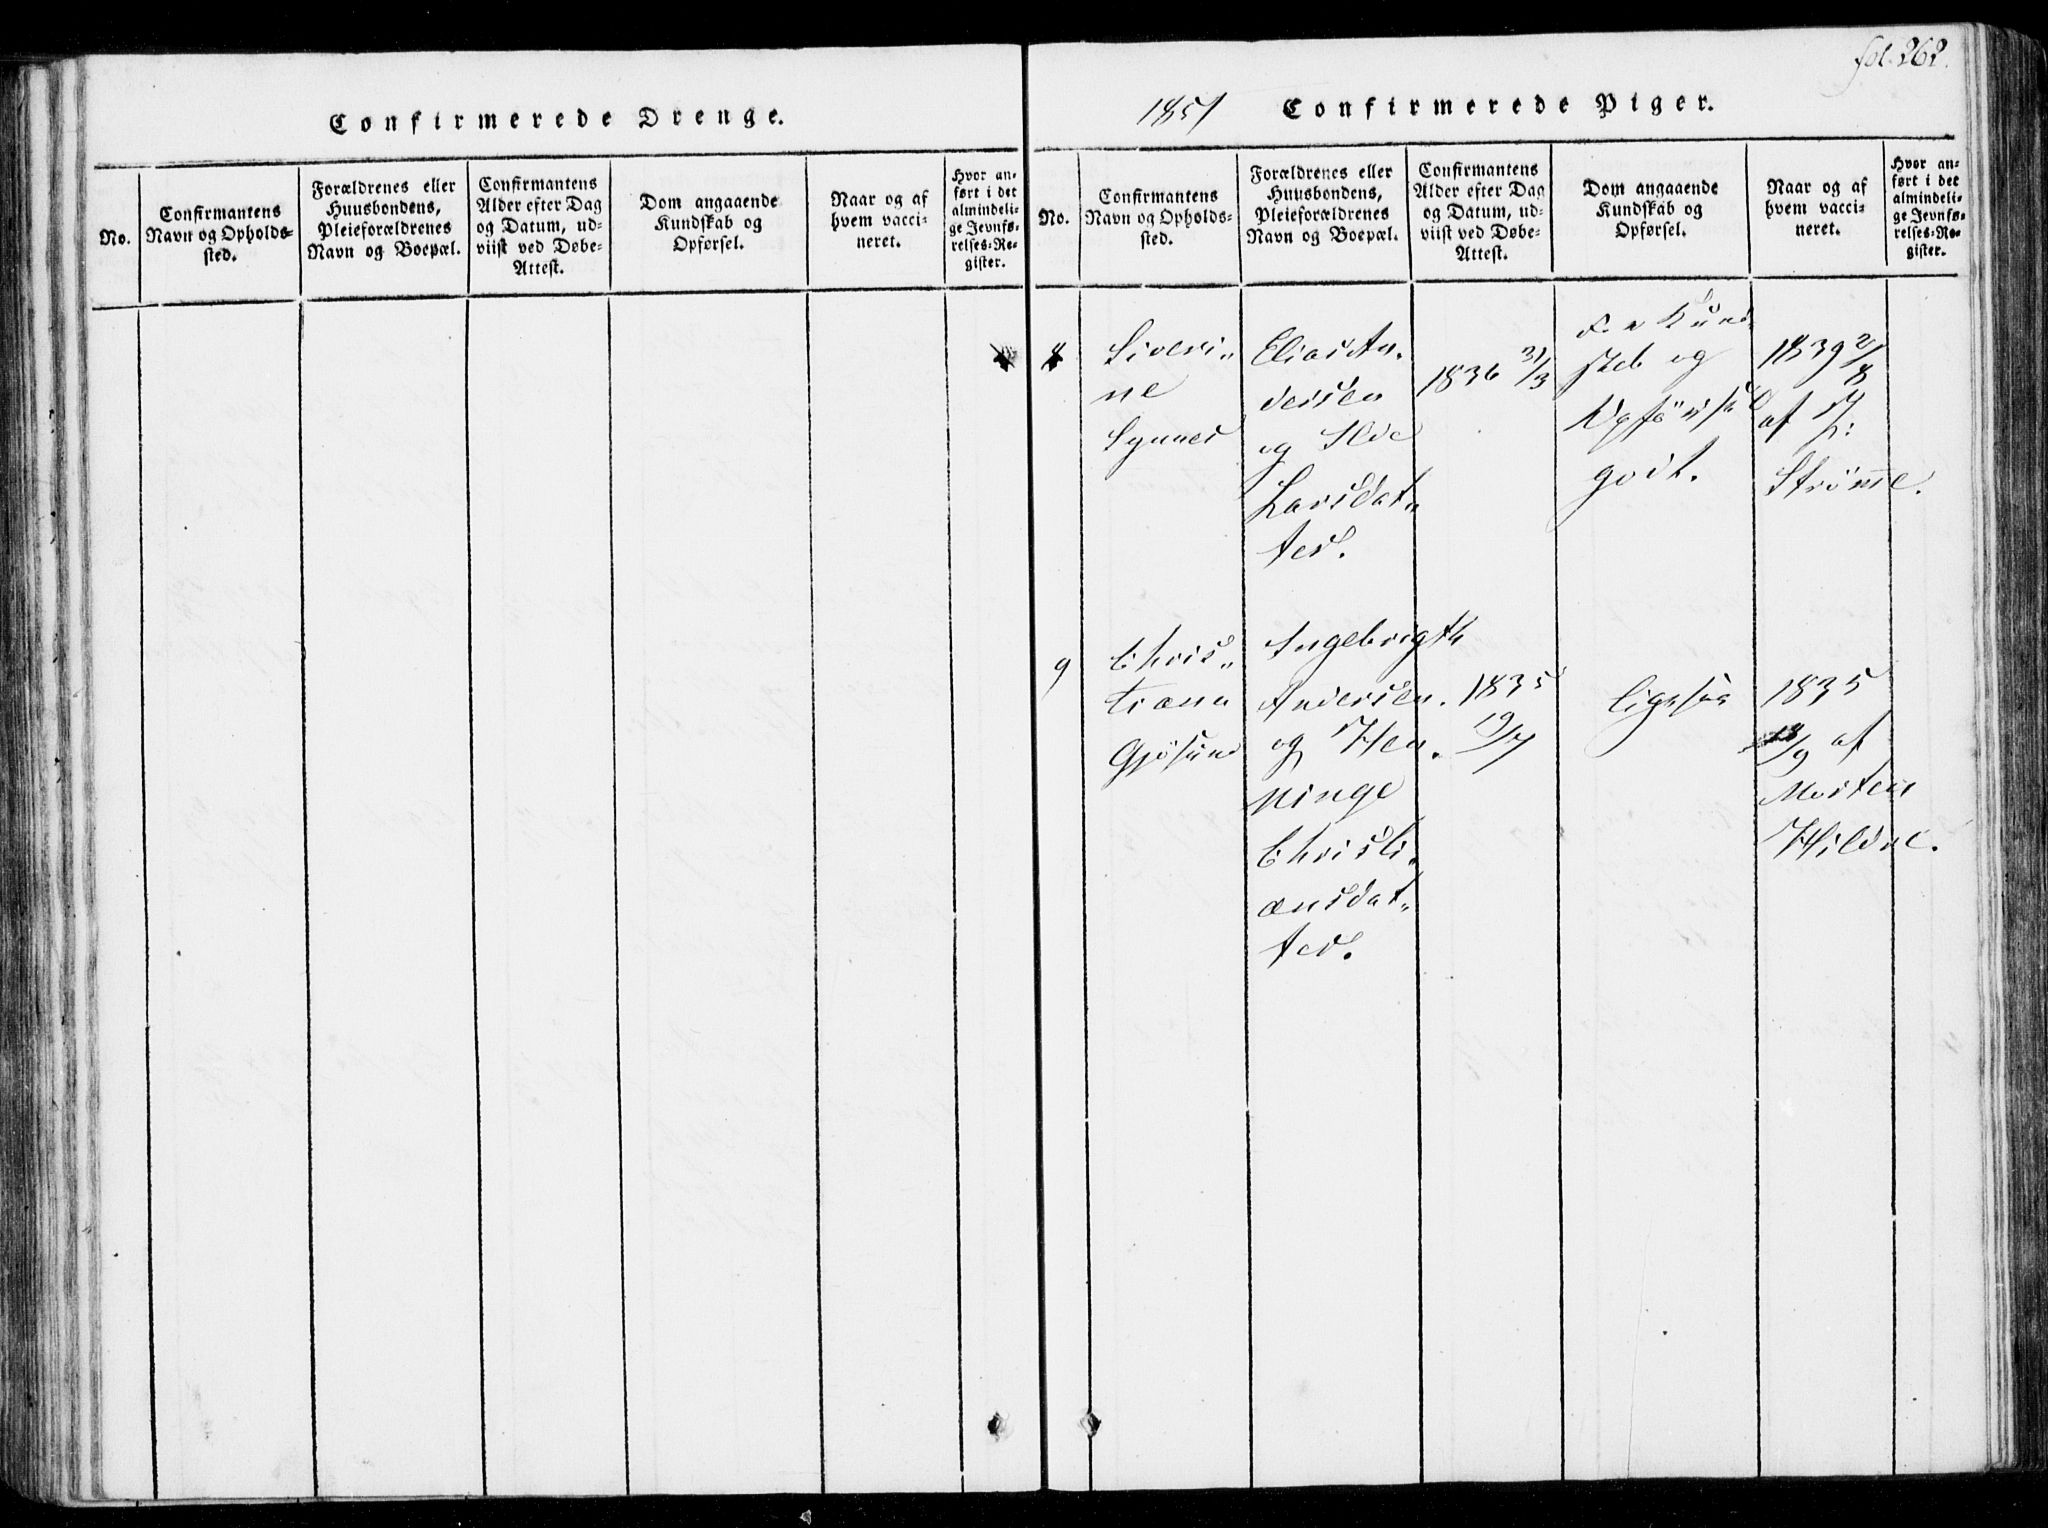 fol. 262.
Confirmerede Drenge.
No.
Confirmantens
Navn og Opholds-
sted.
Forældrenes eller
Huusbondens,
Pleieforældrenes
Navn og Boepæl.
Confirmantens
Alder efter Dag
og Datum, ud-
viist ved Døbe-
Attest.
Dom angaaende
Kundskab og
Opførsel.
Naar og af
hvem vacci-
neret.
Hvor an-
ført i det
almindeli-
ge Jevnfø-
relses-Re-
gister.
1851 Confirmerede Piger.
No.
Confirmantens
Navn og Opholds-
sted.
Forældrenes eller
Huusbondens,
Pleieforældrenes
Navn og Boepæl.
Confirmantens
Alder efter Dag
og Datum, ud-
viist ved Døbe-
Attest.
Dom angaaende
Kundskab og
Opførsel.
Naar og af
hvem vacci-
neret.
Hvor an-
ført i det
almindeli-
ge Jevnfø-
relses-Re-
gister.
8
Siveri„
ne
Synnes
Elias An„
dersen
og
Larsdat„
ter.
1836 31/3
Kund
skab og
Opførsel
godt.
1839 2/8
af
Strømme.
9
Chris„
tiana
Gjøsund
Ingebrigth
Andersen
og Hen„
ninge
Christi„
ansdat„
ter.
1835
19/7
ligesaa
1835
13/9 af
Morten
Hildre.